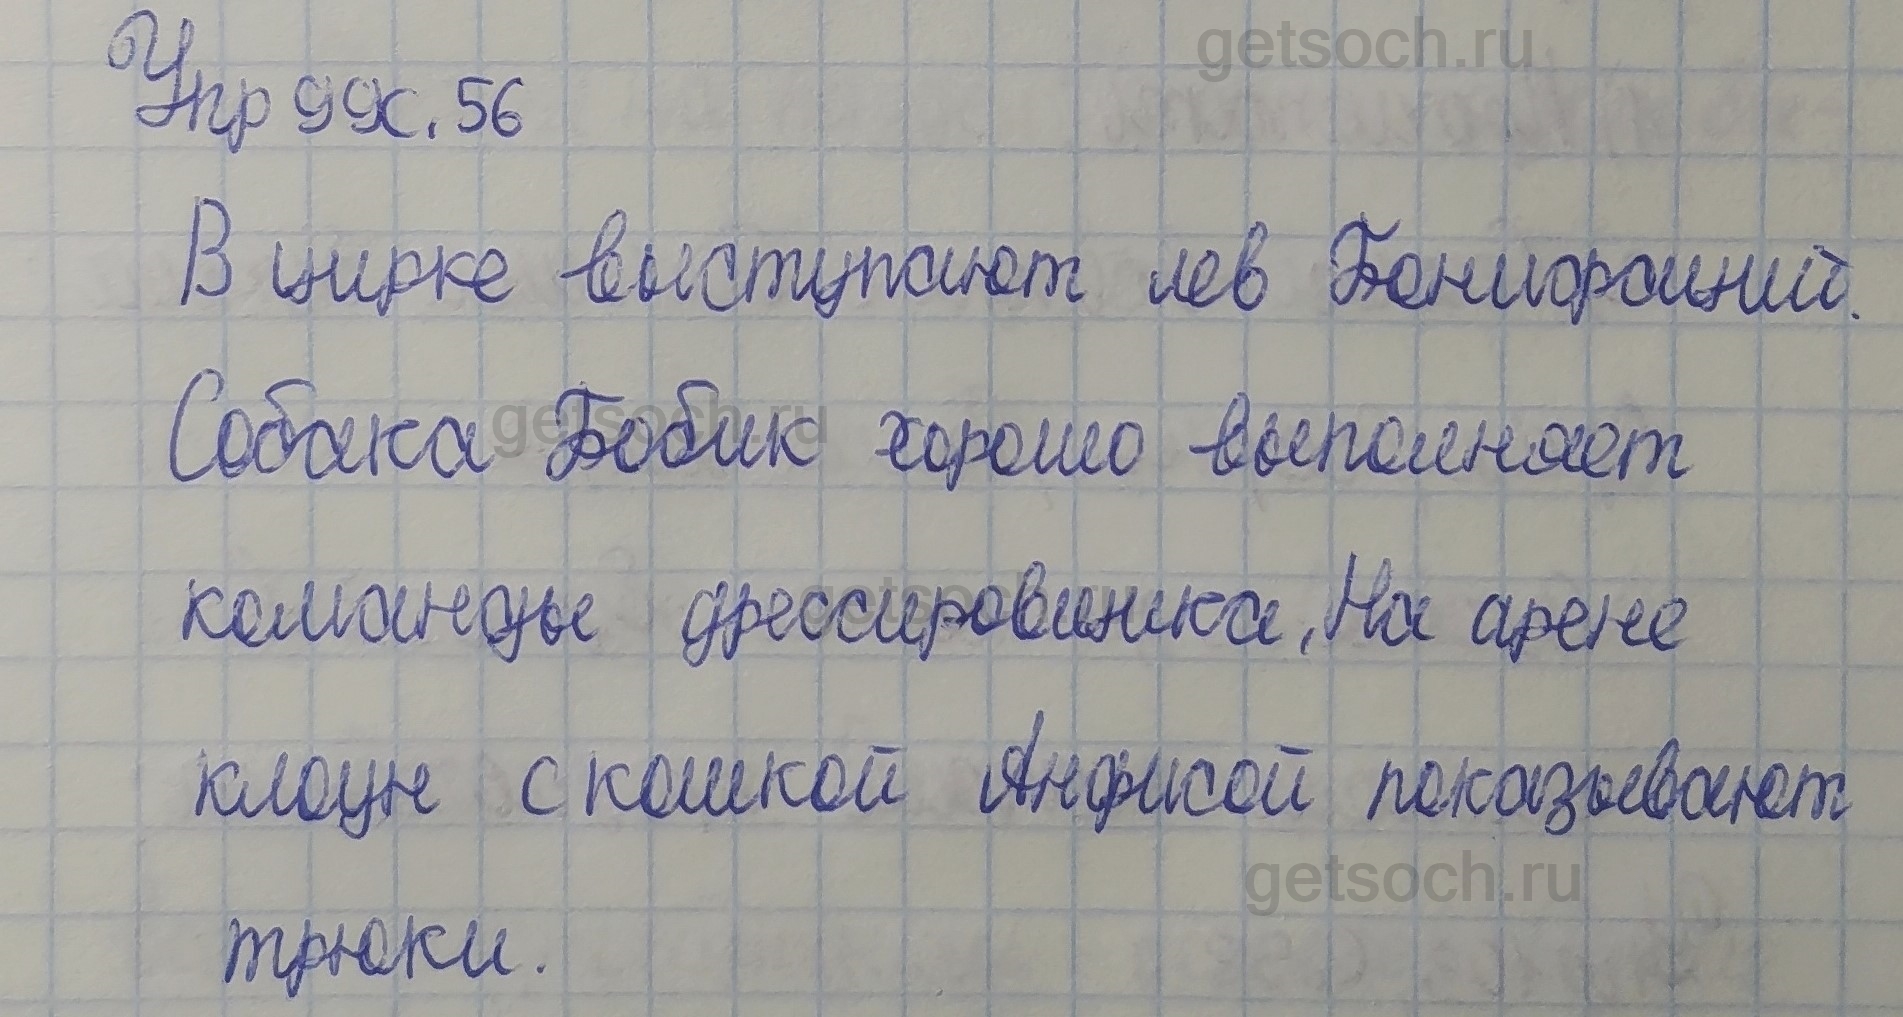 getsoch.ru
Упр 99 с. 56
В цирке выступают лев Бонифаций.
getsoch.ru
Собака Бобик хорошо выполняет
getsoch.ru
команды дрессировщика. На арене
клоун с кошкой Анфисой показывают
getsoch.ru
трюки.